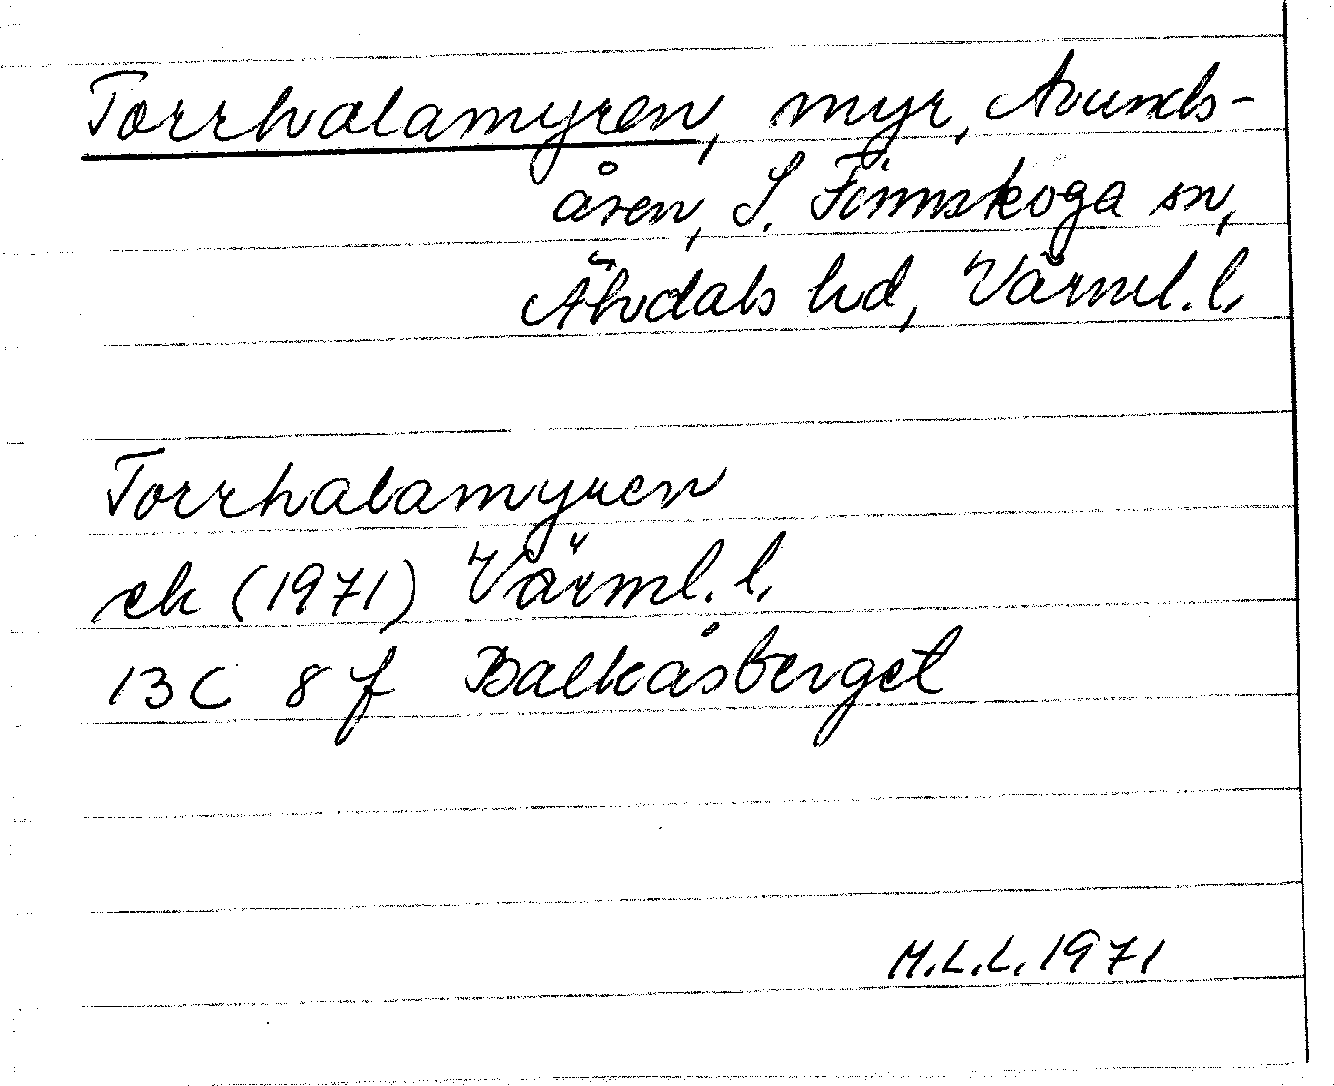 Torrhalamyren, myr, Avunds-
åsen, S. Finnskoga sn,
Älvdals hd, Värml. l.
Torrhalamyren
ek (1971) Värml. l.
13C 8f Balkåsberget
M.L.L. 1971